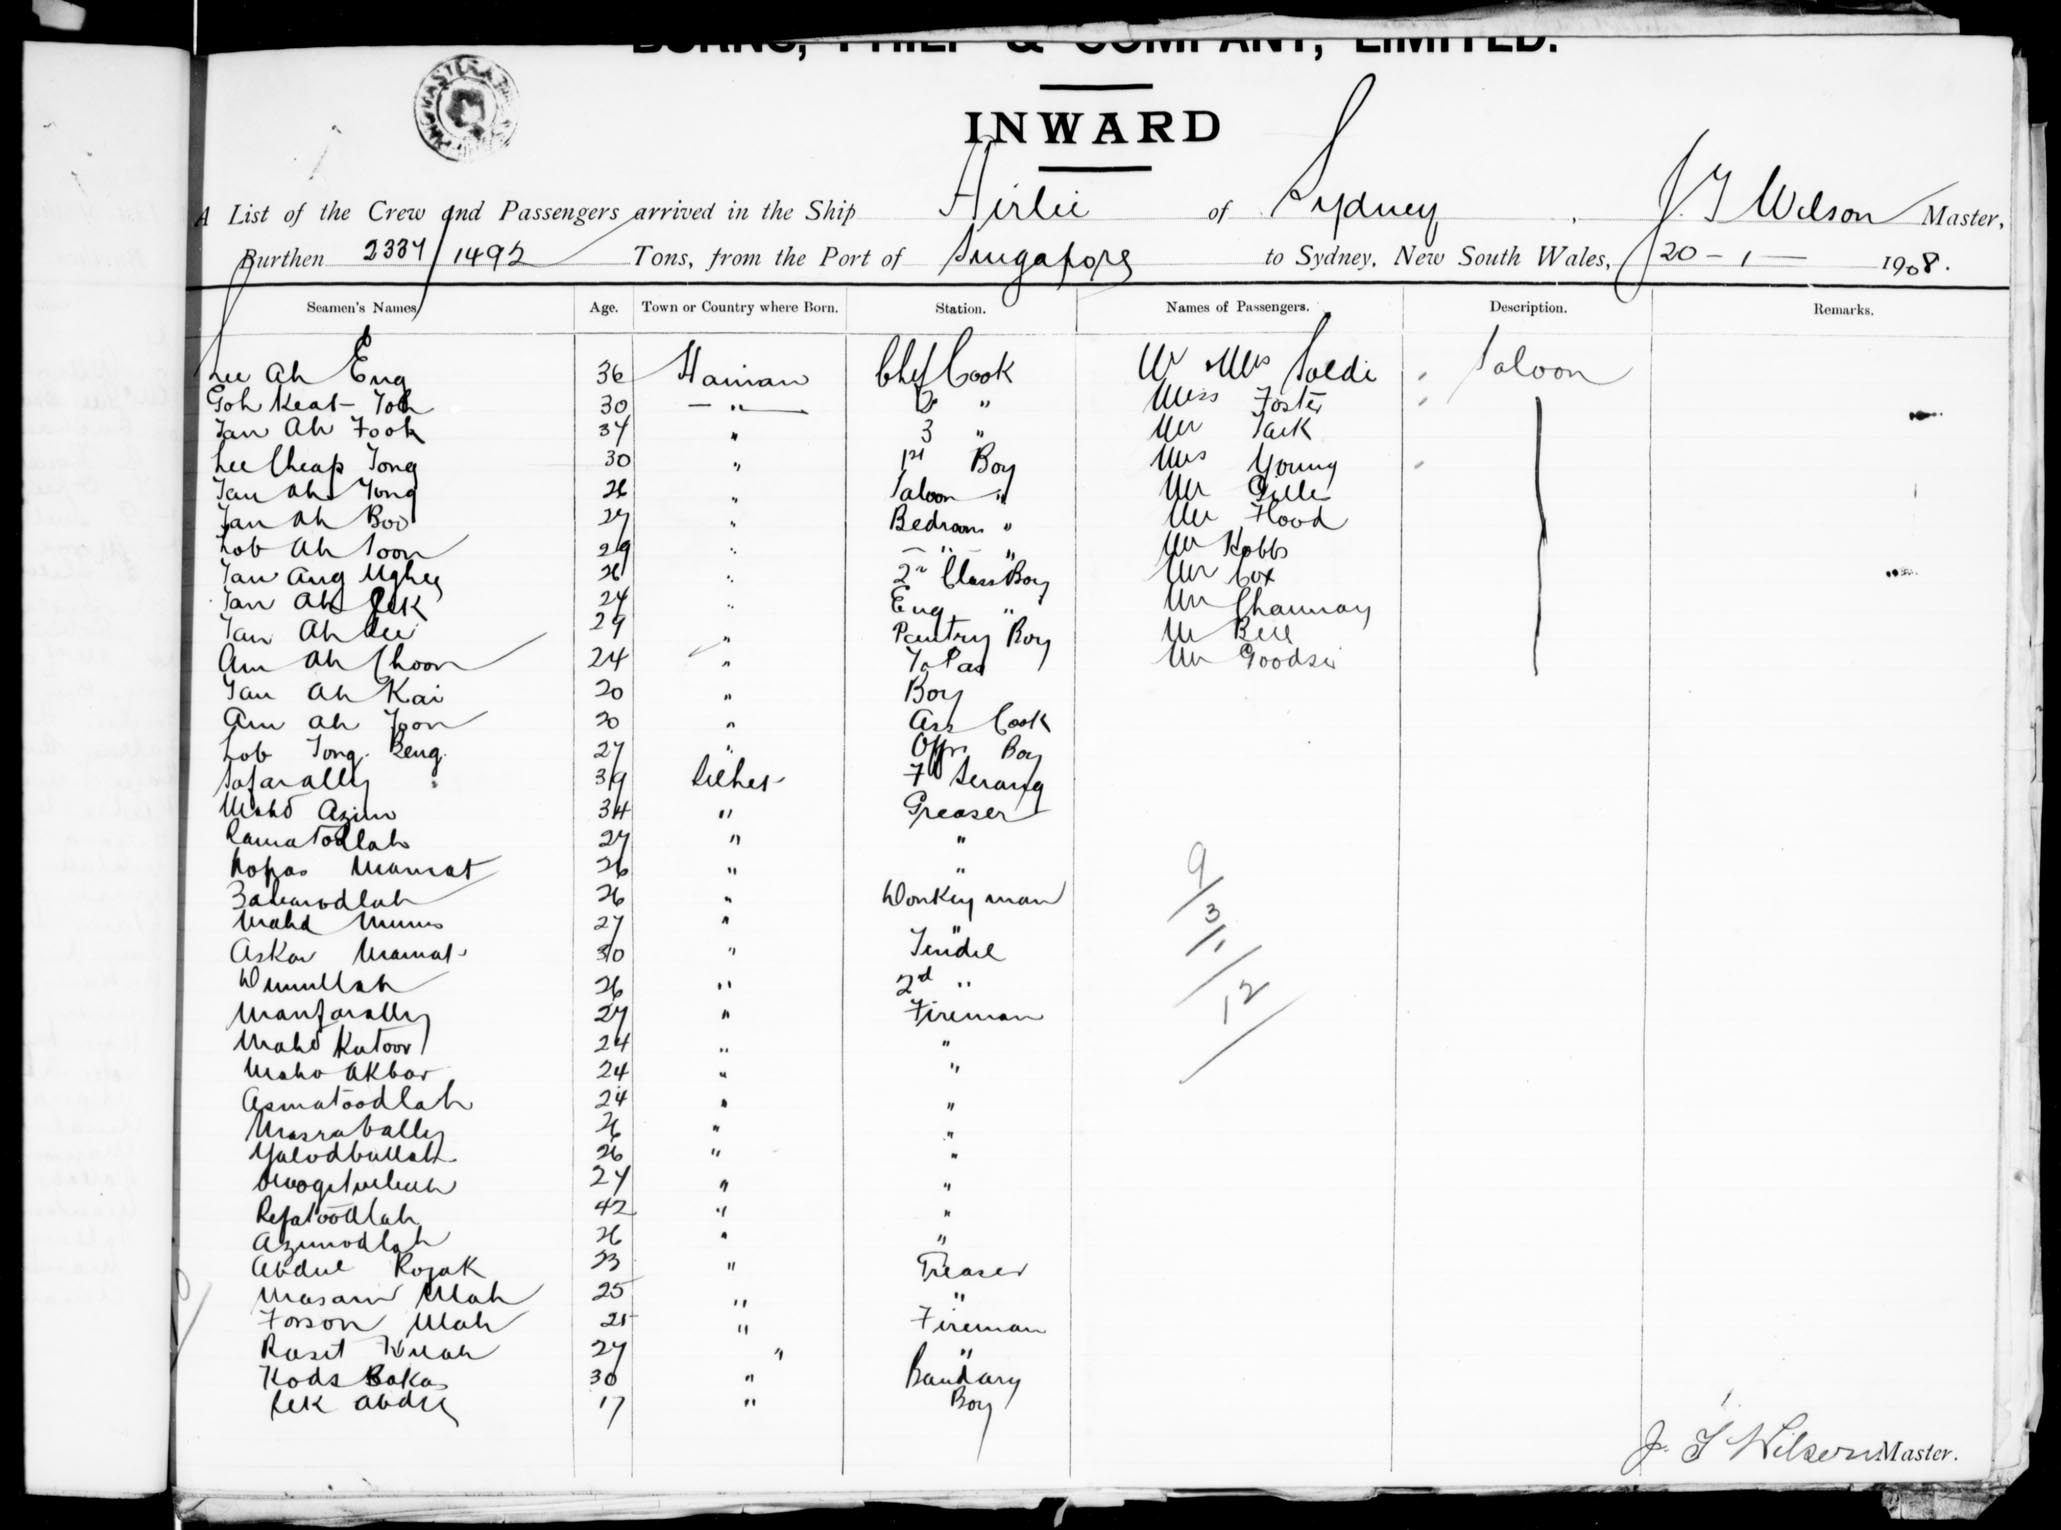 BURNS, PHILP & COMPANY, LIMITED.
INWARD
A List of the Crew and Passengers arrived in the Ship Airlie of Sydney, J. T Wilson Master,
Burthen 2337/1492 Tons, from the Port of Singapore to Sydney, New South Wales, 20-1-1908.
Seamen's Names Age. Town or Country where Born. Station. Names of Passengers. Description. Remarks.
Lee Ah Eng 36 Hainan Chf Cook Mr Mrs Soldi Saloon
Goh Keat Toh 30 " 2 " Miss Foster
Tan Ah Fook 34 " 3 " Mr Tack
Lee Cheap Tong 30 " 1st Boy Mrs Young
Tan Ah Tong 26 " Saloon " Mr
Tan Ah Boo 27 " Bedroom " Mr Flood
Lob Ah Soon 29 " " " Mr Hobbs
Tan Ang Nghee 26 " 2n Class Boy Mr Cox
Tan Ah Jek 24 " Eng " Mr Channay
Tan Ah Lee 29 " Pantry Boy Mr Bell
Am Ah Choon 24 " Topas Mr
Tan Ah Kai 20 " Boy
Am Ah Joon 20 " Ass Cook
Lob Tong Beng 27 " Offrs Boy
Safarally 39 Silhet F Serang
Mahd Azim 34 " Greaser
Ramatodlah 27 " "
Mamat 26 " "
26 " Donkeyman
Mahd 27 " "
Askar Mamat 30 " Tindel
26 " 2nd "
27 " Fireman
Mahd Katoor 24 " "
Mahd Akbar 24 " "
Asmatoodlah 24 " "
Masrabally 26 " "
26 " "
27 " "
Refatoodlah 42 " "
Azimodlah 26 " "
Abdul Rojak 23 " Greaser
Masam Ulah 25 " "
Forson Ulah 25 " Fireman
27 " "
30 " Bandary
17 " Boy
9/3/1/12
J. T Wilson Master.